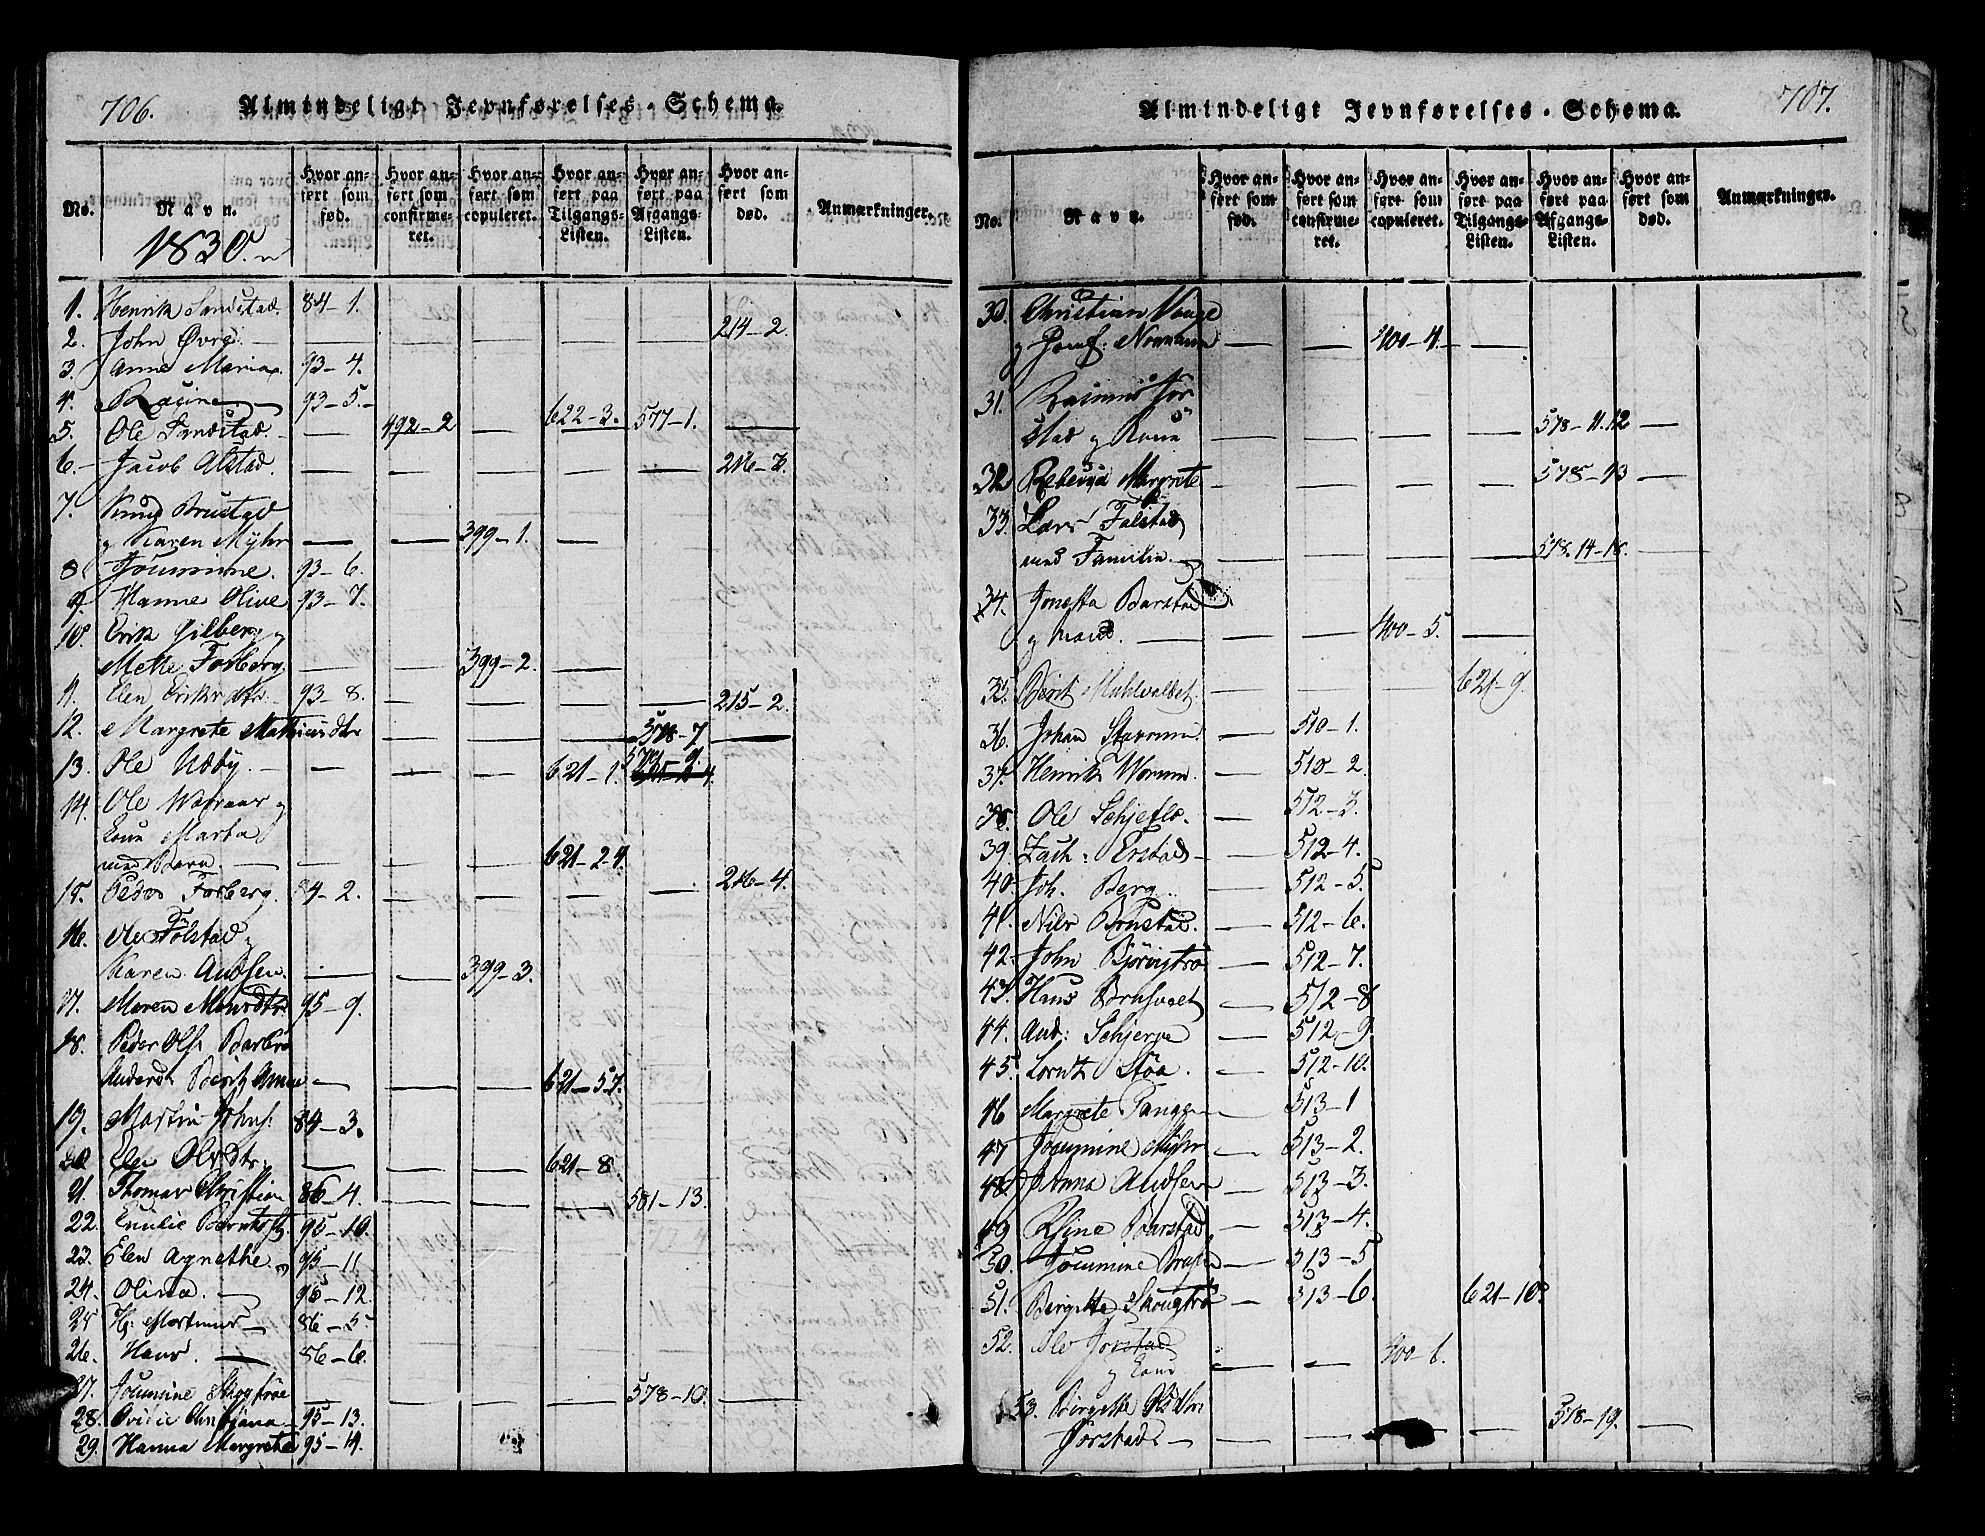 706.
Almindeligt Jevnførelses-Schema.
No. Navn. Hvor anført som fød. Hvor anført som confirmeret. Hvor anført som copuleret. Hvor anført paa Tilgangs-Listen. Hvor anført paa Afgangs-Listen. Hvor anført som død. Anmærkninger.
1830.
1. Henrik Sandstad. 84-1.
2. John Øvre. — — — — — 214-2.
3. Anne Maria. 93-4.
4. Racine. 93-5.
5. Ole Sandstad. — 492-2 — 622-3. 577-1. —
6. Jacob Alstad. — — — — — 216-3.
7. Knud Brustad
og Karen Myhr — — 399-1. —
8. Joumine. 93-6.
9. Hanne Olive 93-7.
10. Erik Gilberg og
Mette Forberg. — — 399-2. —
11. Elen Eriksdtr. 93-8. — — — — 215-2.
12. Margrete Mathiasdtr — — — 578-7 —
13. Ole Udby. — — — 621-1.
14. Ole Waraas og
Kone Marta
med Barn. — — — 621-2.4.
15. Peder Forberg. 84-2. — — — — 216-4.
16. Ole Følstad og
Karen Andsen. — — 399-3.
17. Maren Monsdtr. 95-9.
18. Peder Ols. Barbro
Andersdt Berit Anne — — — 621-5.7.
19. Martin Johns. 84-3.
20 Elen Olsdtr. — — — 621-8.
21. Thomas Christian 86-4. — — — 581-13.
22. Emilie Bernhoft. 95-10.
23. Elen Agnethe. 95-11
24. Olina. — 95-12
25 H: Mortinus — 86-5.
26. Hans. — 86-6.
27. Joumine Skogtrøe — — — — 578-10. —
28. 95-13.
29. Hanna Margrete 95-14.
707.
Almindeligt Jevnførelses-Schema.
No. Navn. Hvor anført som fød. Hvor anført som confirmeret. Hvor anført som copuleret. Hvor anført paa Tilgangs-Listen. Hvor anført paa Afgangs-Listen. Hvor anført som død. Anmærkninger.
30. Christian
og Jomf: Normann — — 400-4. —
31. Rasmus For
stad og Kone — — — — 578-11.12 —
32 Rebecca Margrete — — — — 578-13 —
33. Lars Falstad
med Familie. — — — — 578.14-18. —
34. Jonetta Barstad
og Mand. — — — 400-5. —
35. Berit Muhlvaldet — — — 621-9.
36. Johan Stavrum. — 510-1.
37. Henrik Worum. — 510-2.
38. Ole Schjeflo. — 512-3.
39. Zach: Erstad — 512-4.
40. Joh. Berg. — 512-5.
41. Nils Brustad. — 512-6.
42. John Bjøringtrø — 512-7.
43. Hans Brusvaet — 512-8
44. And: Schjerve — 512-9
45. Lorntz Støa. — 512-10.
46 Margrete Vangge — 513-1
47 Joumine Myhr — 513-2.
48. Anna Andsen — 513-3.
49 Elsine Barstad — 513-4.
50. Joumine — 513-5
51. Bergitte Skougtrø — 513-6. 621-10.
52. Ole Jorstad
og Kone — — 400-6.
53. Birgitte
Jorstad — — — — — 578-19. —